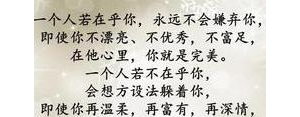 一个人若在乎你，永远不会嫌弃你，
即使你不漂亮、不优秀，不富足，
在他心里，你就是完美。
一个人若不在乎你，
会想方设法躲着你，
即使你再温柔，再富有，再深情，